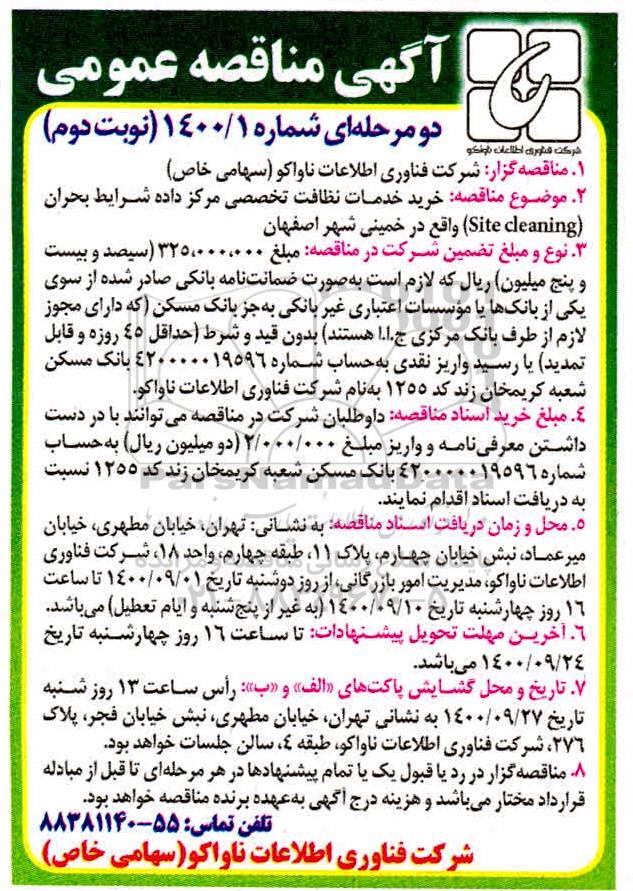 آگهی مناقصه عمومی
شرکت فناوری اطلاعات ناواکو
دو مرحله‌ای شماره ۱۴۰۰/۱ (نوبت دوم)
۱. مناقصه‌گزار: شرکت فناوری اطلاعات ناواکو (سهامی خاص)
۲. موضوع مناقصه: خرید خدمات نظافت تخصصی مرکز داده شرایط بحران
(Site cleaning) واقع در خمینی شهر اصفهان
۳. نوع و مبلغ تضمین شرکت در مناقصه: مبلغ ۳۲۵،۰۰۰،۰۰۰ (سیصد و بیست
و پنج میلیون) ریال که لازم است به‌صورت ضمانت‌نامه بانکی صادر شده از سوی
یکی از بانک‌ها یا مؤسسات اعتباری غیر بانکی به‌جز بانک مسکن (که دارای مجوز
لازم از طرف بانک مرکزی ج.ا.ا هستند) بدون قید و شرط (حداقل ۴۵ روزه و قابل
تمدید) یا رسید واریز نقدی به‌حساب شماره ۴۲۰۰۰۰۰۰۱۹۵۹۶ بانک مسکن
شعبه کریمخان زند کد ۱۲۵۵ به‌نام شرکت فناوری اطلاعات ناواکو.
۴. مبلغ خرید اسناد مناقصه: داوطلبان شرکت در مناقصه می‌توانند با در دست
داشتن معرفی‌نامه و واریز مبلغ ۲/۰۰۰/۰۰۰ (دو میلیون ریال) به‌حساب
شماره ۴۲۰۰۰۰۰۰۱۹۵۹۶ بانک مسکن شعبه کریمخان زند کد ۱۲۵۵ نسبت
به دریافت اسناد اقدام نمایند.
۵. محل و زمان دریافت اسناد مناقصه: به نشانی: تهران، خیابان مطهری، خیابان
میرعماد، نبش خیابان چهارم، پلاک ۱۱، طبقه چهارم، واحد ۱۸، شرکت فناوری
اطلاعات ناواکو، مدیریت امور بازرگانی، از روز دوشنبه تاریخ ۱۴۰۰/۰۹/۰۱ تا ساعت
۱۶ روز چهارشنبه تاریخ ۱۴۰۰/۰۹/۱۰ (به غیر از پنج‌شنبه و ایام تعطیل) می‌باشد.
۶. آخرین مهلت تحویل پیشنهادات: تا ساعت ۱۶ روز چهارشنبه تاریخ
۱۴۰۰/۰۹/۲۴ می‌باشد.
۷. تاریخ و محل گشایش پاکت‌های «الف» و «ب»: رأس ساعت ۱۳ روز شنبه
تاریخ ۱۴۰۰/۰۹/۲۷ به نشانی تهران، خیابان مطهری، نبش خیابان فجر، پلاک
۲۷۶، شرکت فناوری اطلاعات ناواکو، طبقه ۴، سالن جلسات خواهد بود.
۸. مناقصه‌گزار در رد یا قبول یک یا تمام پیشنهادها در هر مرحله‌ای تا قبل از مبادله
قرارداد مختار می‌باشد و هزینه درج آگهی به‌عهده برنده مناقصه خواهد بود.
تلفن تماس: ۵۵-۸۸۳۸۱۱۴۰
شرکت فناوری اطلاعات ناواکو (سهامی خاص)
ParsNamadData